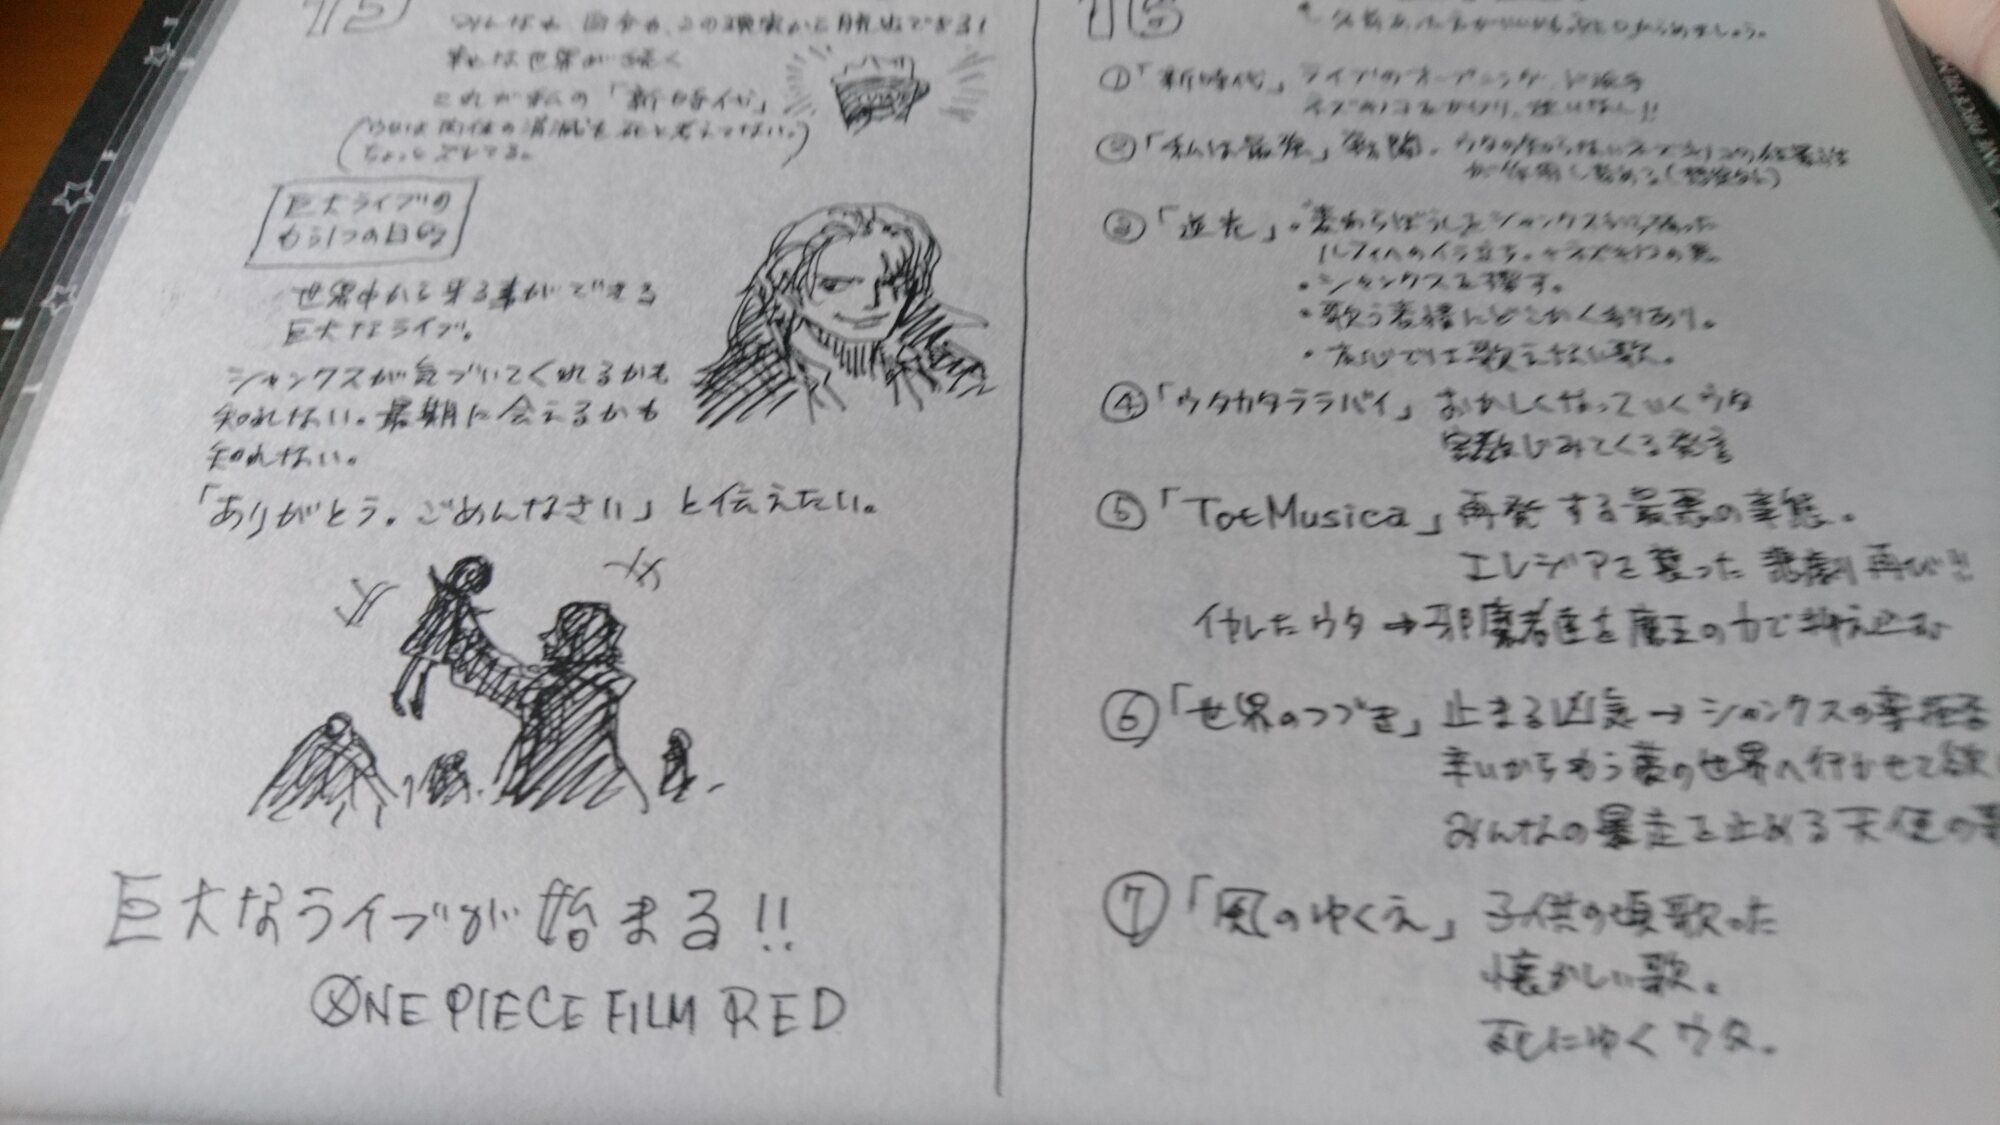 15
みんなも、自分も、この現実から脱出できる!
世界が続く
これが私の「新時代」
(ウタは肉体の消滅を死と考えてない。)
ちょっとズレてる。
巨大ライブの
もう1つの目的
世界中から来る事ができる
巨大なライブ。
シャンクスが気づいてくれるかも
知れない。最期に会えるかも
知れない。
「ありがとう。ごめんなさい」と伝えたい。
巨大なライブが始まる!!
ONE PIECE FILM RED
16
①「新時代」ライブのオープニング、ど派手
②「私は最強」戦闘。ウタの
③「逆光」・麦わらぼうしとシャンクスをかばった
ルフィへのイラ立ち。
・シャンクスを探す。
・歌う表情にどこか
・本心では歌えない歌。
④「ウタカタララバイ」おかしくなっていくウタ
じみてくる発言
⑤「Tot Musica」再発する最悪の事態。
エレジアを襲った悲劇再び!!
ウタ→邪魔者達を魔王の力で抑え込む
⑥「世界のつづき」止まる凶気→シャンクスの
辛いからもう夢の世界へ行かせて欲
みんなの暴走を止める天使の
⑦「風のゆくえ」子供の頃歌った
懐かしい歌。
死にゆくウタ。